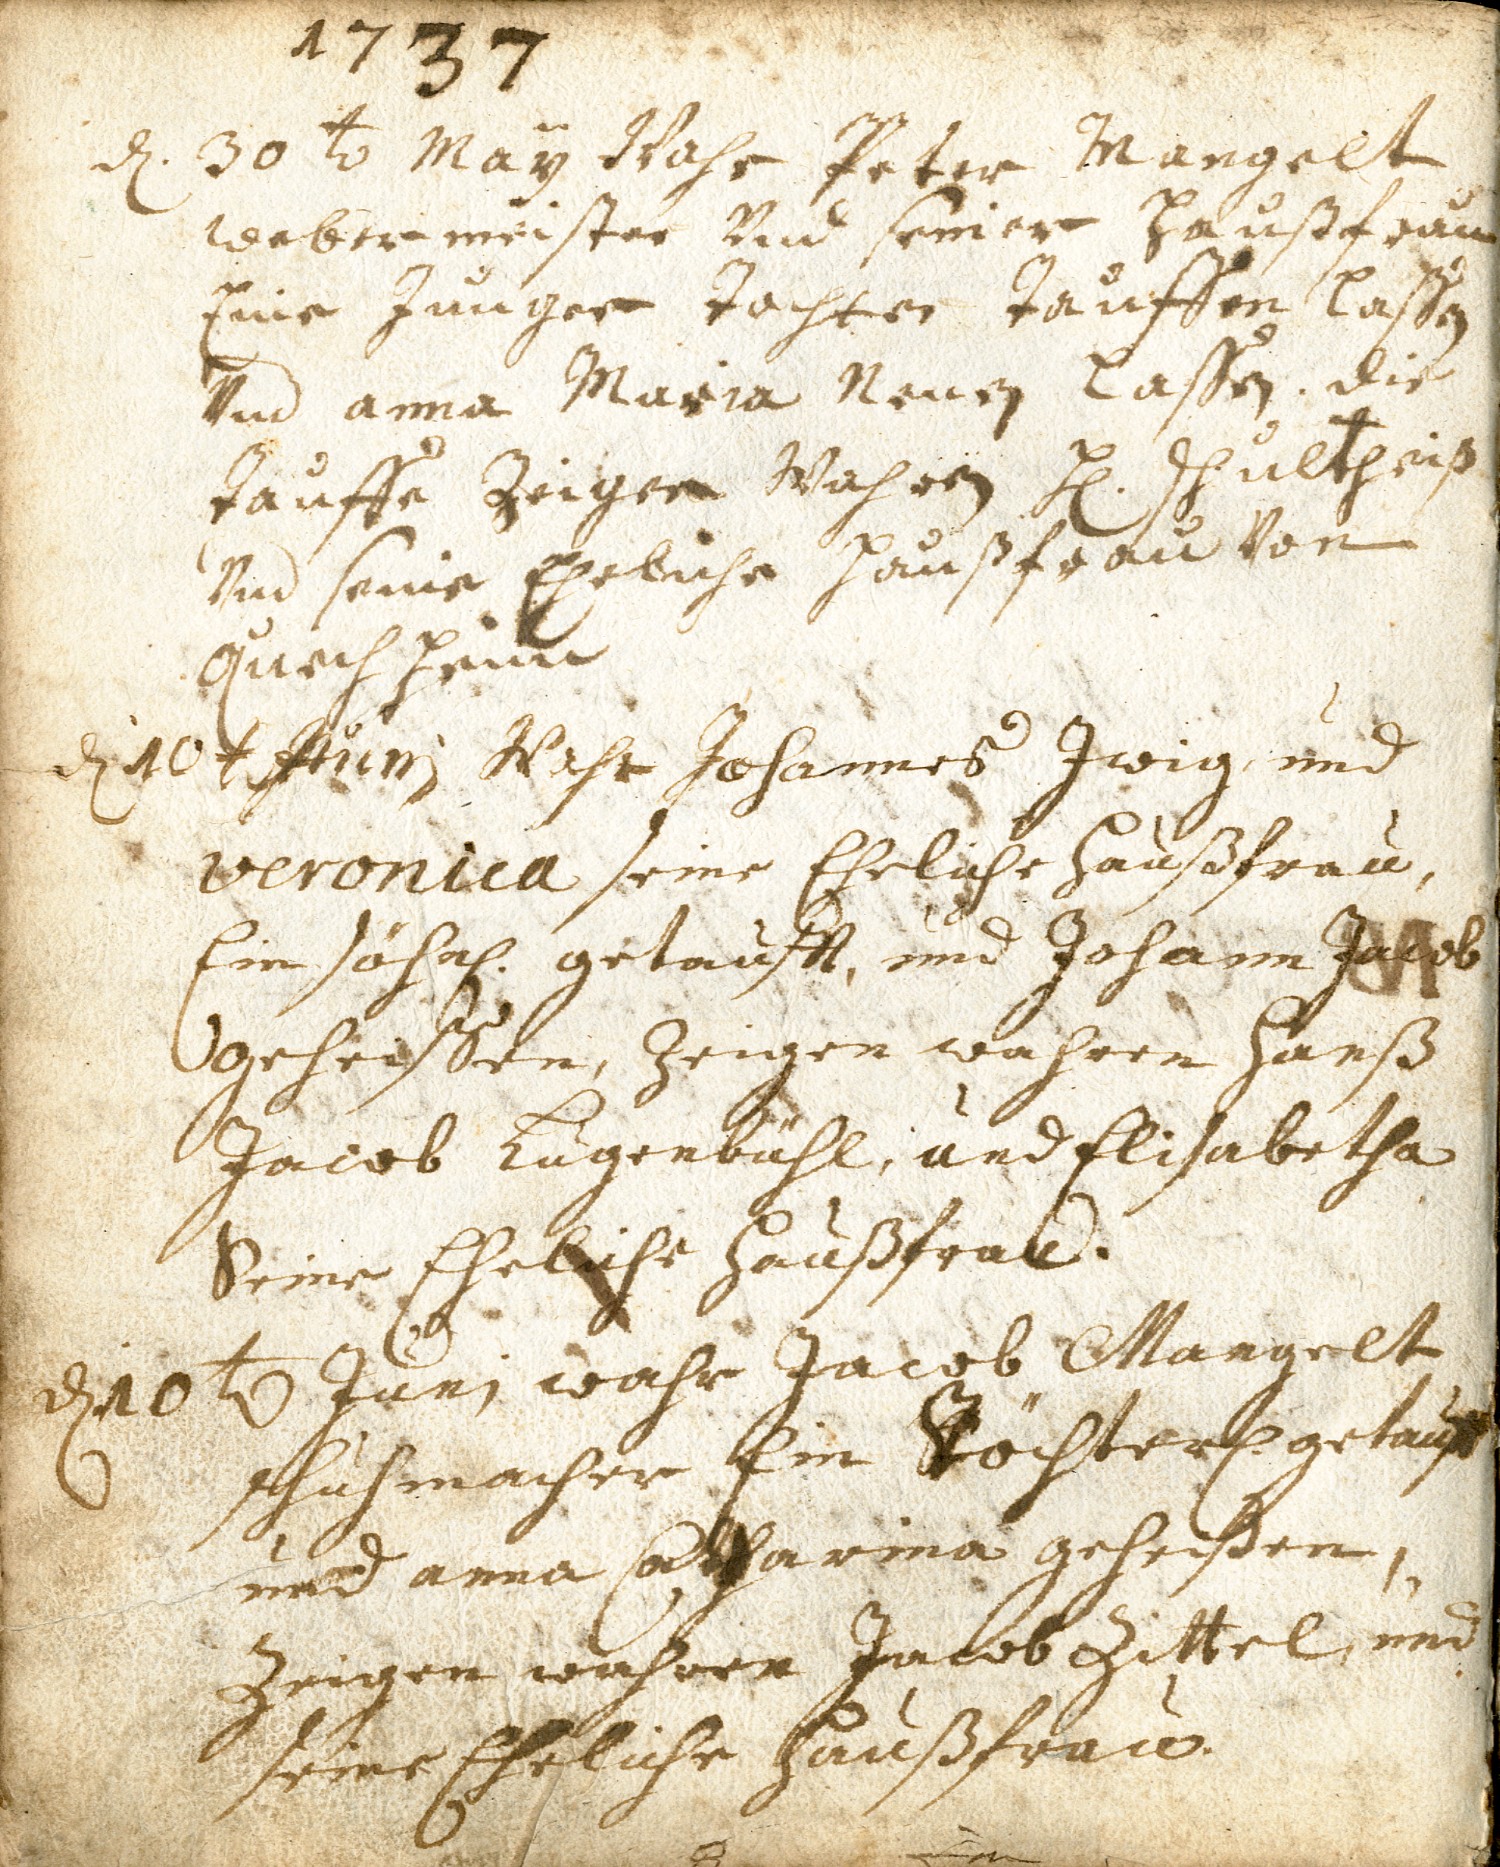 1737
d. 30 t May Wahr Peter Mangelt
webermeister Und seiner Haußfrau
Eine Junger Tochter Tauffen lassen
Und anna Maria Nenen lassen. die
Tauffe Zeigen Wahren H. Schultheiß
Und seine Eheliche Haußfrau Von
Queichheim
d 10 t Junj Wahr Johannes Zwig, und
veronica seine Eheliche Haußfrau,
Ein söhnl. getaufft, und Johann Jacob
geheissen, Zeigen wahren Hanß
Jacob Lugenbühl, und Elisabetha
Seine Eheliche Haußfrau.
d 10 t Junj wahr Jacob Mangelt
schuhmacher Ein Töchterl. getaufft
und anna Catharina geheißen,
Zeigen wahren Jacob Zittel, und
seine Eheliche Haußfrau.